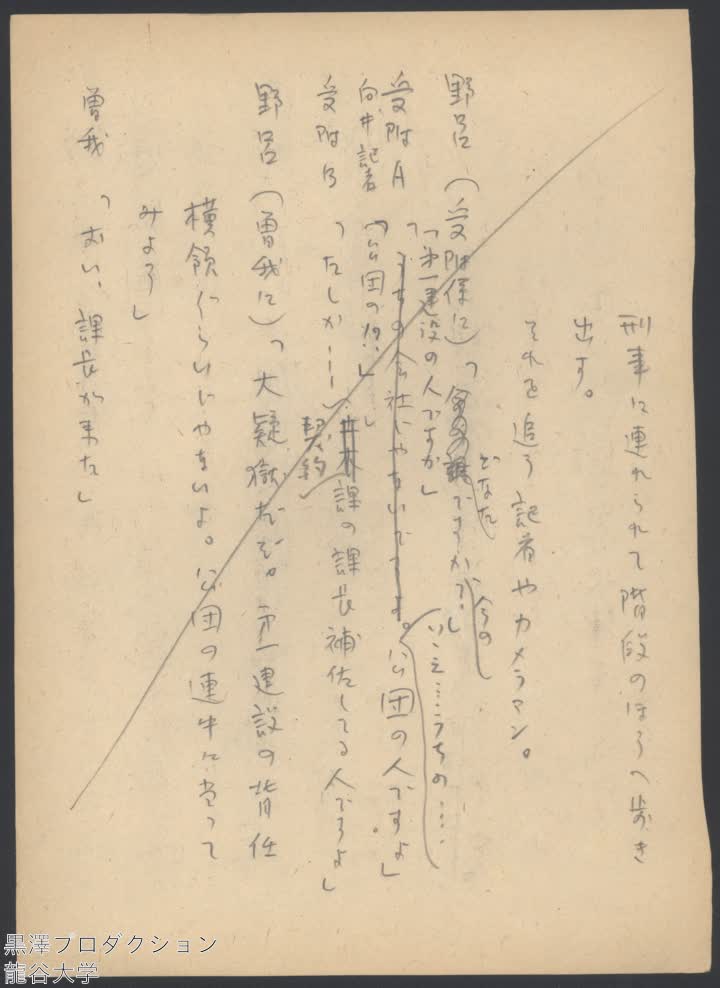 刑事に連れられて階段のほうへ歩き
出す。
それを追う記者やカメラマン。
野呂(受附係に)「どなたですか、今の」
「第一建設の人ですか」
受附A「うちの会社じゃないです。公団の人ですよ」
いえ……うちの……
向井記者「公団の!?」
受附B「たしか……契約課の課長補佐してる人ですよ」
野呂(曽我に)「大疑獄だぞ。第一建設の背任
横領ぐらいじゃないよ。公団の連中に当って
みよう」
曽我「おい、課長が来た」
黒澤プロダクション
龍谷大学